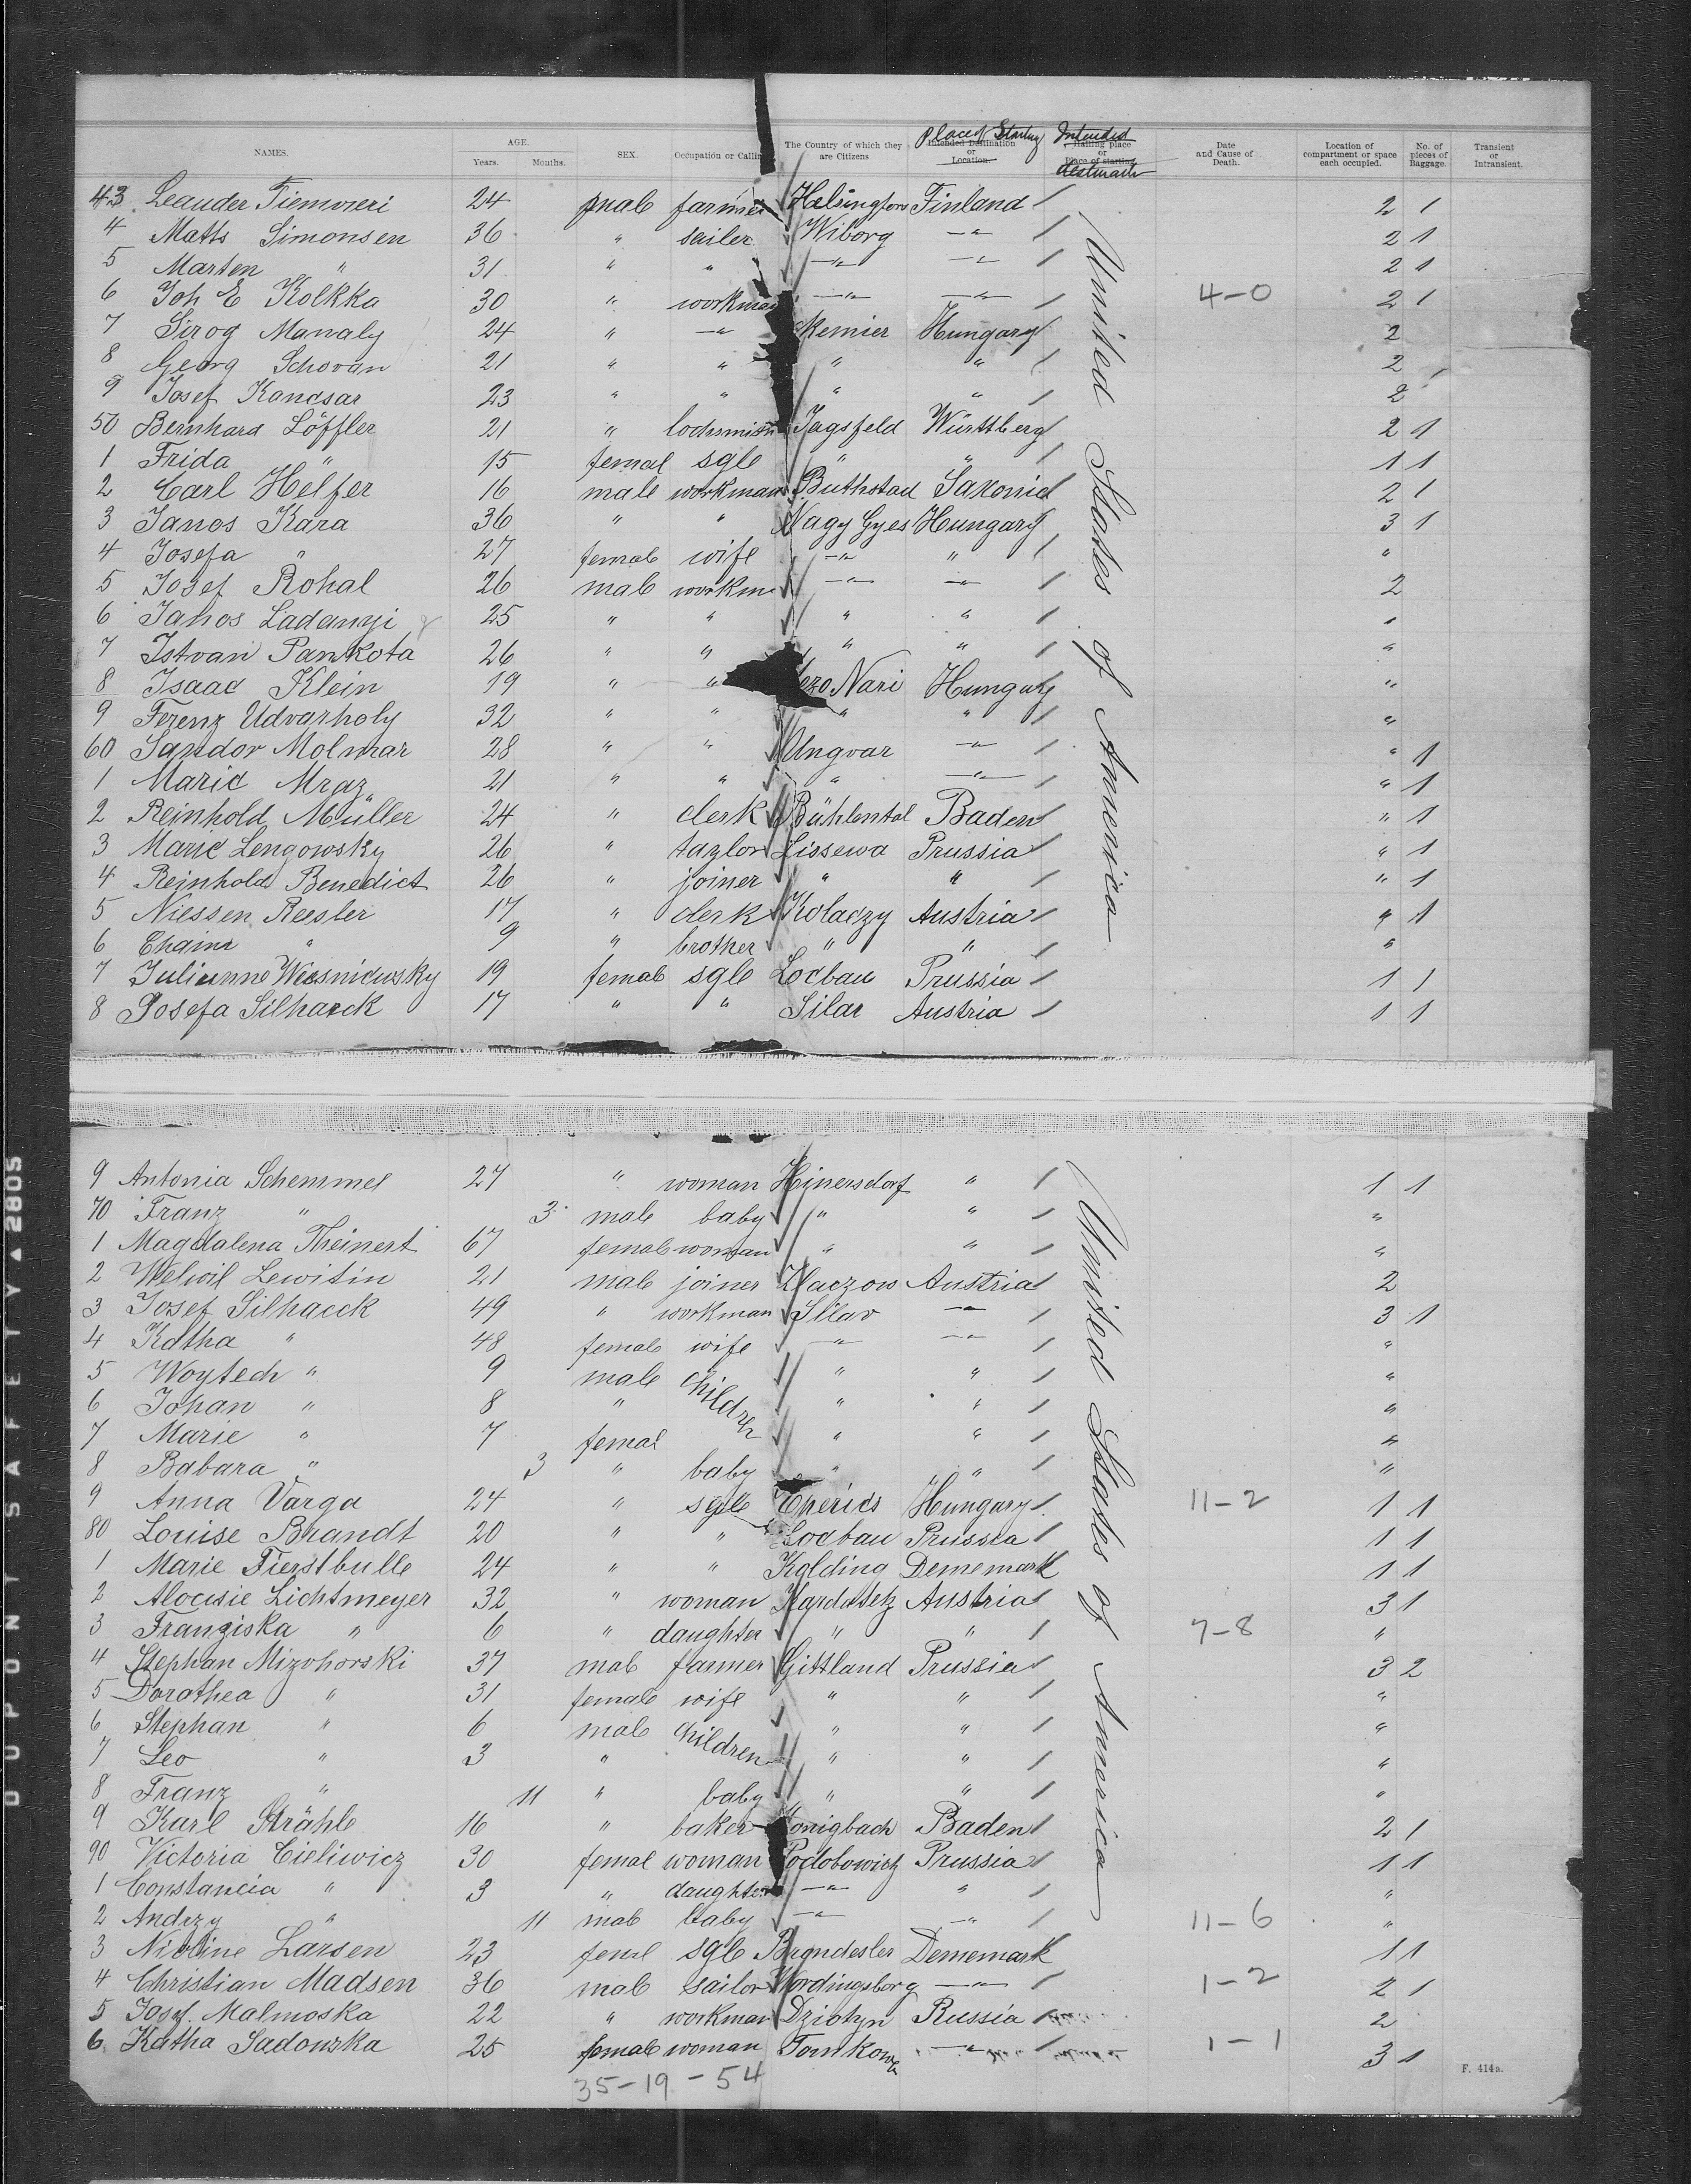 NAMES. AGE. Years. Months. SEX. Occupation or Calling The Country of which they are Citizens Place of Starting Intended Destination or Location Intended Halting place or Place of starting destination Date and Cause of Death. Location of compartment or space each occupied. No. of pieces of Baggage. Transient or Intransient.
43 Leander 24 male farmer Helsingfors Finland / 2 1
4 Matts Simonsen 36 " sailer Wiborg —"— / 2 1
5 Marten " 31 " " —"— —"— / 2 1
6 Joh E Kolkka 30 " workman —"— —"— / 4-0 2 1
7 Sirog Manaly 24 " —"— Hungary / 2
8 Georg Schovan 21 " " " " / 2
9 Josef Kancsar 23 " " " " / 2
50 Bernhard Löffler 21 " Jagsfeld Württberg / 2 1
1 Frida " 15 femal sgle " " / 1 1
2 Carl Helfer 16 male workman Buthstad Saxonie / 2 1
3 Janos Kara 36 " " Nagy Gyes Hungary / 3 1
4 Josefa " 27 female wife —"— " / "
5 Josef Rohal 26 male workm —"— —"— / 2
6 Janos Ladanyi 25 " " " " / "
7 Istvan Pankota 26 " " " " / "
8 Isaac Klein 19 " " Nari Hungary "
9 Ferenz Udvarholy 32 " " " " / "
60 Sandor Molmar 28 " " Ungvar —"— / " 1
1 Marie Mraz 21 " " " —"— / " 1
2 Reinhold Müller 24 " clerk Bühlental Baden / " 1
3 Marie Lengowsky 26 " taylor Lissewa Prussia / " 1
4 Reinhold Benedict 26 " joiner " " / " 1
5 Niessen Reesler 17 " clerk Kolaczy Austria / " 1
6 Chaim " 9 " brother " " / "
7 Julianne Wiesniewsky 19 female sgle Loebau Prussia / 1 1
8 Josefa Silhacek 17 " " Silar Austria / 1 1
9 Antonia Schemmel 27 " woman Heinersdorf " / 1 1
70 Franz " 3 male baby " " / "
1 Magdalena Theinert 67 female woman " " / "
2 Welwil Lewitin 21 male joiner Zlaczow Austria / 2
3 Josef Silhacek 49 " workman Silar —"— / 3 1
4 Katha " 48 female wife —"— —"— / "
5 Woytech " 9 male children " " / "
6 Johan " 8 " " " / "
7 Marie " 7 femal " " / "
8 Babara " 3 " baby " " / "
9 Anna Varga 24 " sgle Hungary / 11-2 1 1
80 Louise Brandt 20 " " Loebau Prussia / 1 1
1 Marie Fierstbulle 24 " " Kolding Denemark 1 1
2 Aloisie Lichtmeyer 32 " woman Austria / 3 1
3 Franziska " 6 " daughter " " / 7-8 "
4 Stephan Mizohorski 37 male farmer Gittland Prussia / 3 2
5 Dorothea " 31 female wife " " / "
6 Stephan " 6 male children " " / "
7 Leo " 3 " " " / "
8 Franz " 11 " baby " " / "
9 Karl Strähle 16 " baker Baden / 2 1
90 Victoria Cieliwicz 30 femal woman Podobowitz Prussia / 1 1
1 Constancia " 3 " daughter —"— " / "
2 Andrzy " 11 male baby —"— —"— / 11-6 "
3 Nicoline Larsen 23 feml sgle Denemark 1 1
4 Christian Madsen 36 male sailor Wordingsborg —"— / 1-2 2 1
5 Josef Malmoska 22 " workman Russia / 2
6 Katha Sadowska 25 female woman Tomkowa —"— / 1-1 3 1
35-19-54
United States of America
United States of America
F. 414a.
DUPONT SAFETY ▲ 2805